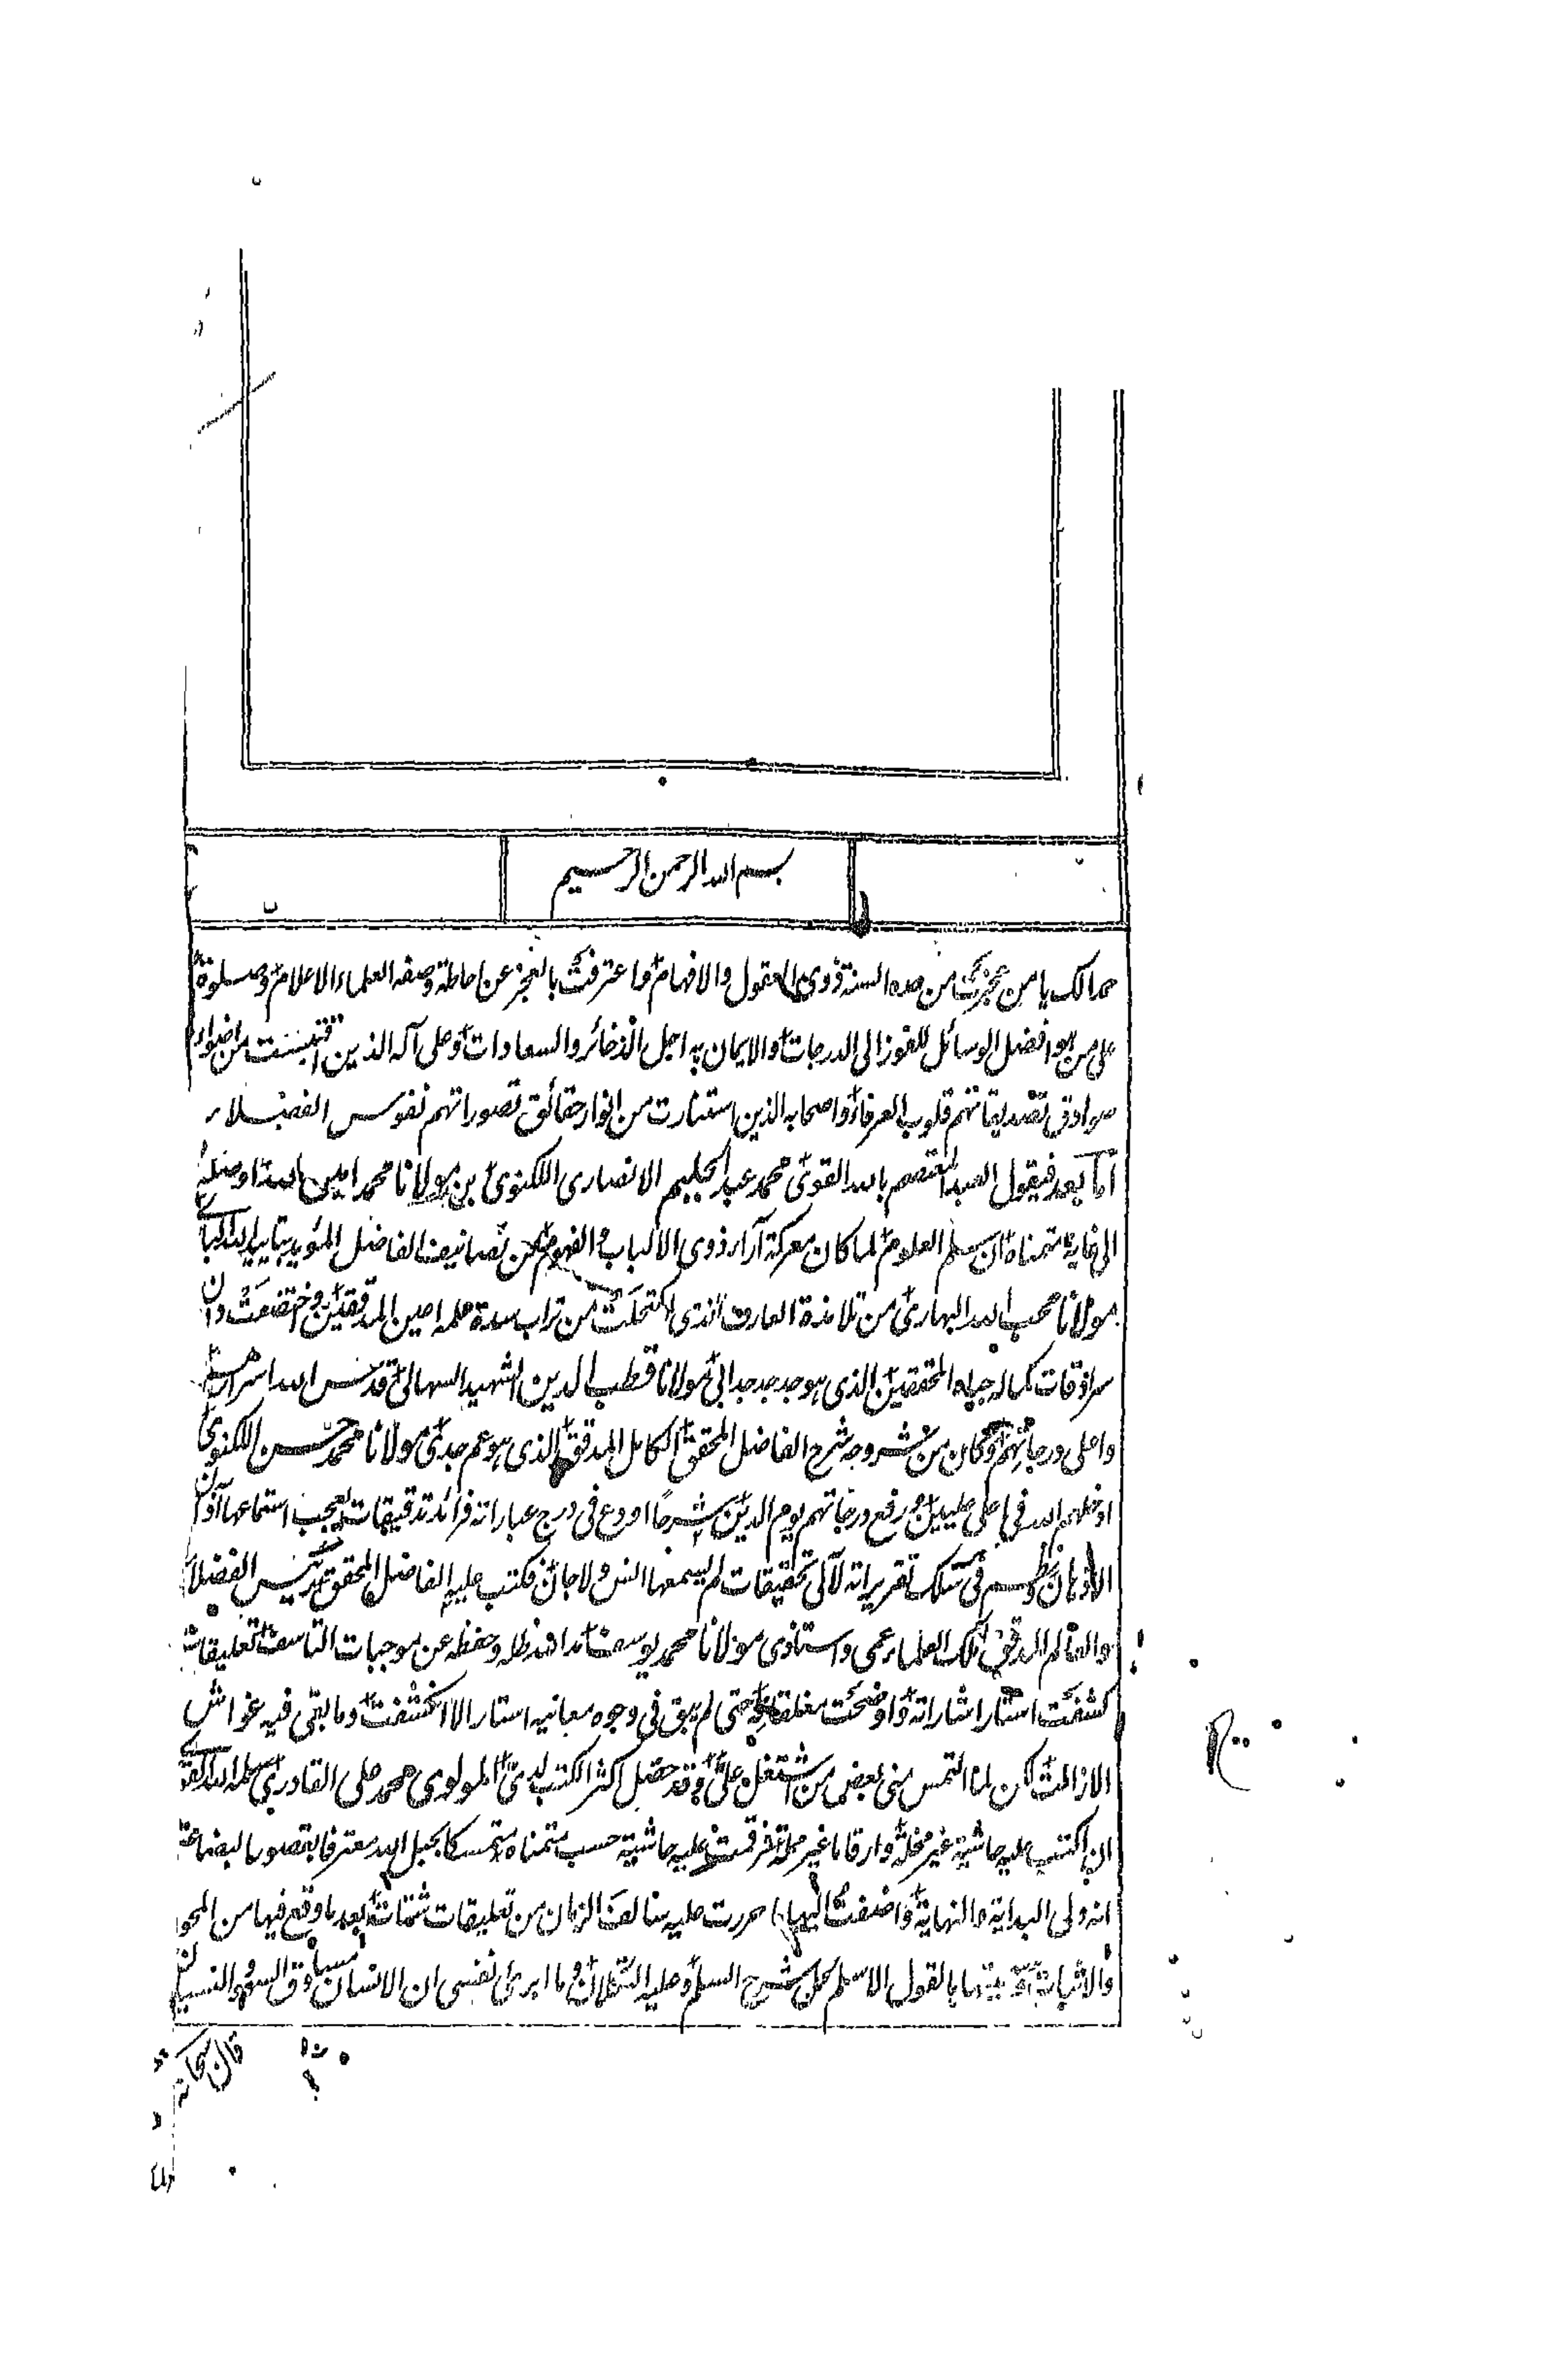 بسم الله الرحمن الرحيم
حمدا لك يا من عجزت من حمده السنة ذوى العقول والافهام واعترفت بالعجز عن احاطة وصفه العلماء الاعلام وصلوة
على من هو افضل الوسائل للفوز الى الدرجات والايمان به اجل الذخائر والسعادات وعلى آله الذين اقتبست من اضواء
سرادق تصديقاتهم قلوب العرفاء واصحابه الذين استنارت من انوار حقائق تصوراتهم نفوس الفضلاء
اما بعد فيقول العبد المعتصم بالله القوى محمد عبد الحليم الانصارى اللكنوى بن مولانا محمد امين الله اوصله
الى غاية متمناه ان سلم العلوم لما كان معركة آراء ذوى الالباب والفهوم من تصانيف الفاضل المؤيد بتاييد الله البارى
مولانا محب الله البهارى من تلامذة العارف الذى اكتحلت من تراب سدة علمه اعين المدققين وخضعت دون
سرادقات كماله جباه المحققين الذى هو جد جد جد ابى مولانا قطب الدين الشهيد السهالى قدس الله اسرارهم
واعلى درجاتهم وكان من شروحه شرح الفاضل المحقق الكامل المدقق الذى هو عم جدى مولانا محمد حسن اللكنوى
ادخلهم الله فى اعلى عليين ورفع درجاتهم يوم الدين شرحا اودع فى درج عباراته فرائد تدقيقات يعجب استماعها آذان
الاذهان ونظم فى سلك تقريراته لآلى تحقيقات لم يسمعها انس ولا جان فكتب عليه الفاضل المحقق رئيس الفضلاء
والعالم المدقق ملك العلماء عمى واستاذى مولانا محمد يوسف مد الله ظله وحفظه عن موجبات التاسف تعليقات
كشفت استار اشاراته واوضحت مغلقاته حتى لم يبق فى وجوه معانيه استار الا انكشفت وما بقى فيه غواش
الا زالت لكن لما التمس منى بعض من اشتغل على وقد حصل اكثر الكتب لدى المولوى محمد على القادرى سلمه الله القوى
ان اكتب عليه حاشية غير مخلة وارقاما غير مملة فرقمت عليه حاشية حسب متمناه متمسكا بحبل الله معترفا بقصور البضاعة
انه ولى البداية والنهاية واضفت اليها ما حررت عليه سالف الزمان من تعليقات شتات بعد ما وقع فيها من المحو
والاثبات وسميتها بالقول الاسلم لحل شرح السلم وعليه التكلان وما ابرئ نفسى ان الانسان مساوق السهو والنسيان
قال سبحانه